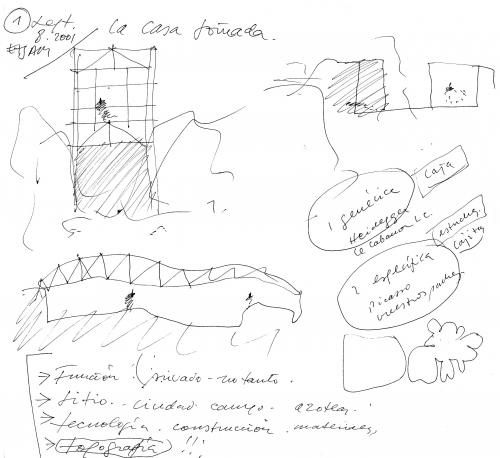 1 Sept
8.2001
La casa soñada.
caja
1 genérica
Heidegger
Le Cabanon LC
estuche
cajita
2 específica
Picasso
nuestros padres
→ Función (privado - no tanto.
→ Sitio.. ciudad campo azotea.
→ tecnología. construcción. materiales
→ topografía !!!